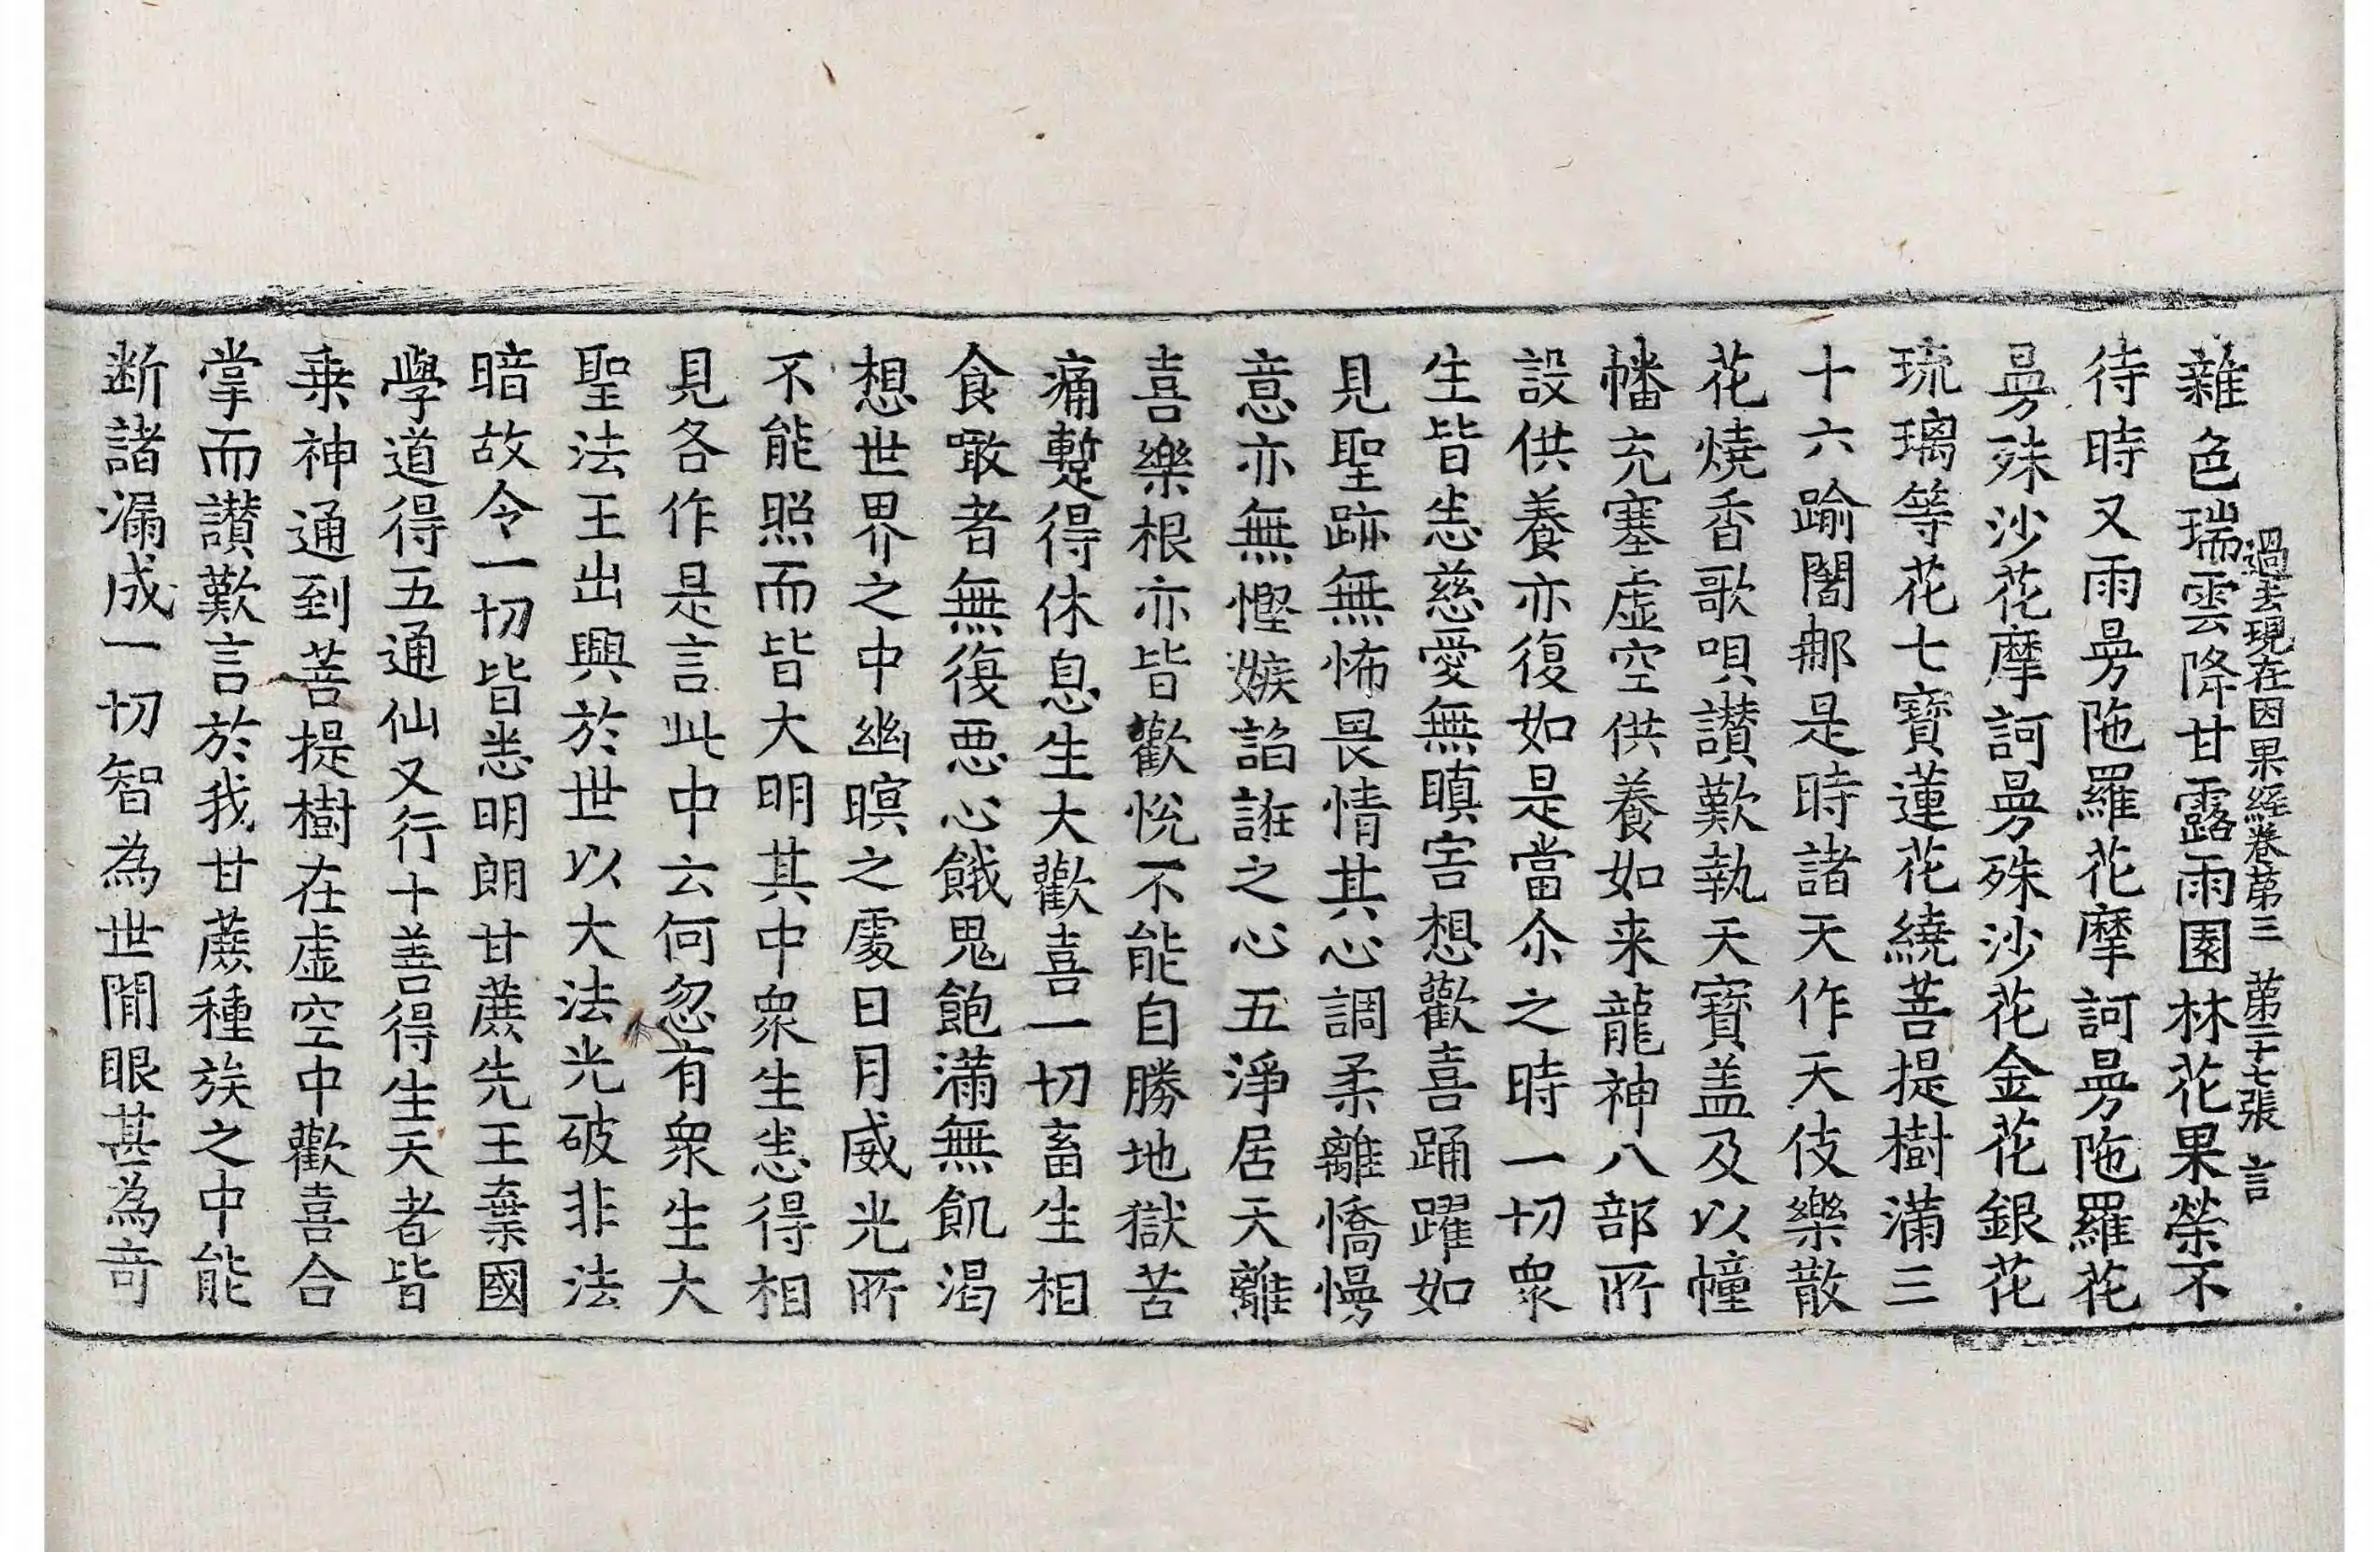 過去現在因果経卷苐三　苐二十七張　言
雜色瑞雲降甘露雨園林花果榮不
待時又雨㬅陁羅花摩訶㬅陁羅花
㬅殊沙花摩訶㬅殊沙花金花銀花
琉璃等花七寶蓮花繞菩提樹滿三
十六踰闍那是時諸天作天伎樂散
花燒香歌唄讃歎執天寶盖及以幢
幡充塞虛空供養如来龍神八部所
設供養亦復如是當尒之時一切衆
生皆悉慈愛無瞋害想歡喜踊躍如
見聖跡無怖畏情其心調柔離憍慢
意亦無慳嫉諂誑之心五淨居天離
喜樂根亦皆歡悅不能自勝地獄苦
痛蹔得休息生大歡喜一切畜生相
食噉者無復惡心餓鬼飽滿無飢渴
想世界之中幽暝之處日月威光所
不能照而皆大明其中衆生悉得相
見各作是言此中云何忽有衆生大
聖法王出興於世以大法光破非法
暗故令一切皆悉明朗甘蔗先王棄國
學道得五通仙又行十善得生天者皆
乗神通到菩提樹在虛空中歡喜合
掌而讃歎言於我甘蔗種族之中能
断諸漏成一切智為世間眼甚為竒